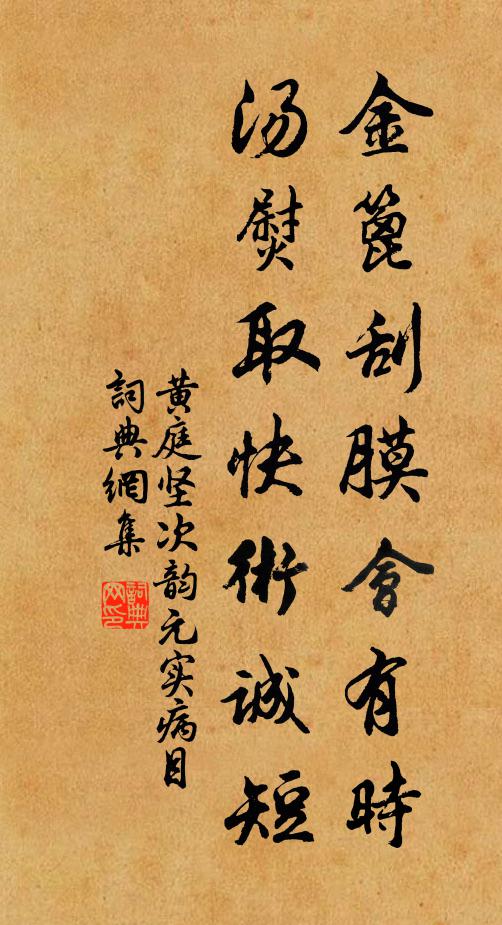 金篦刮膜會有時
汤熨取快術诚短
黄庭坚次韵元实病目
詞典網集
詞典网印